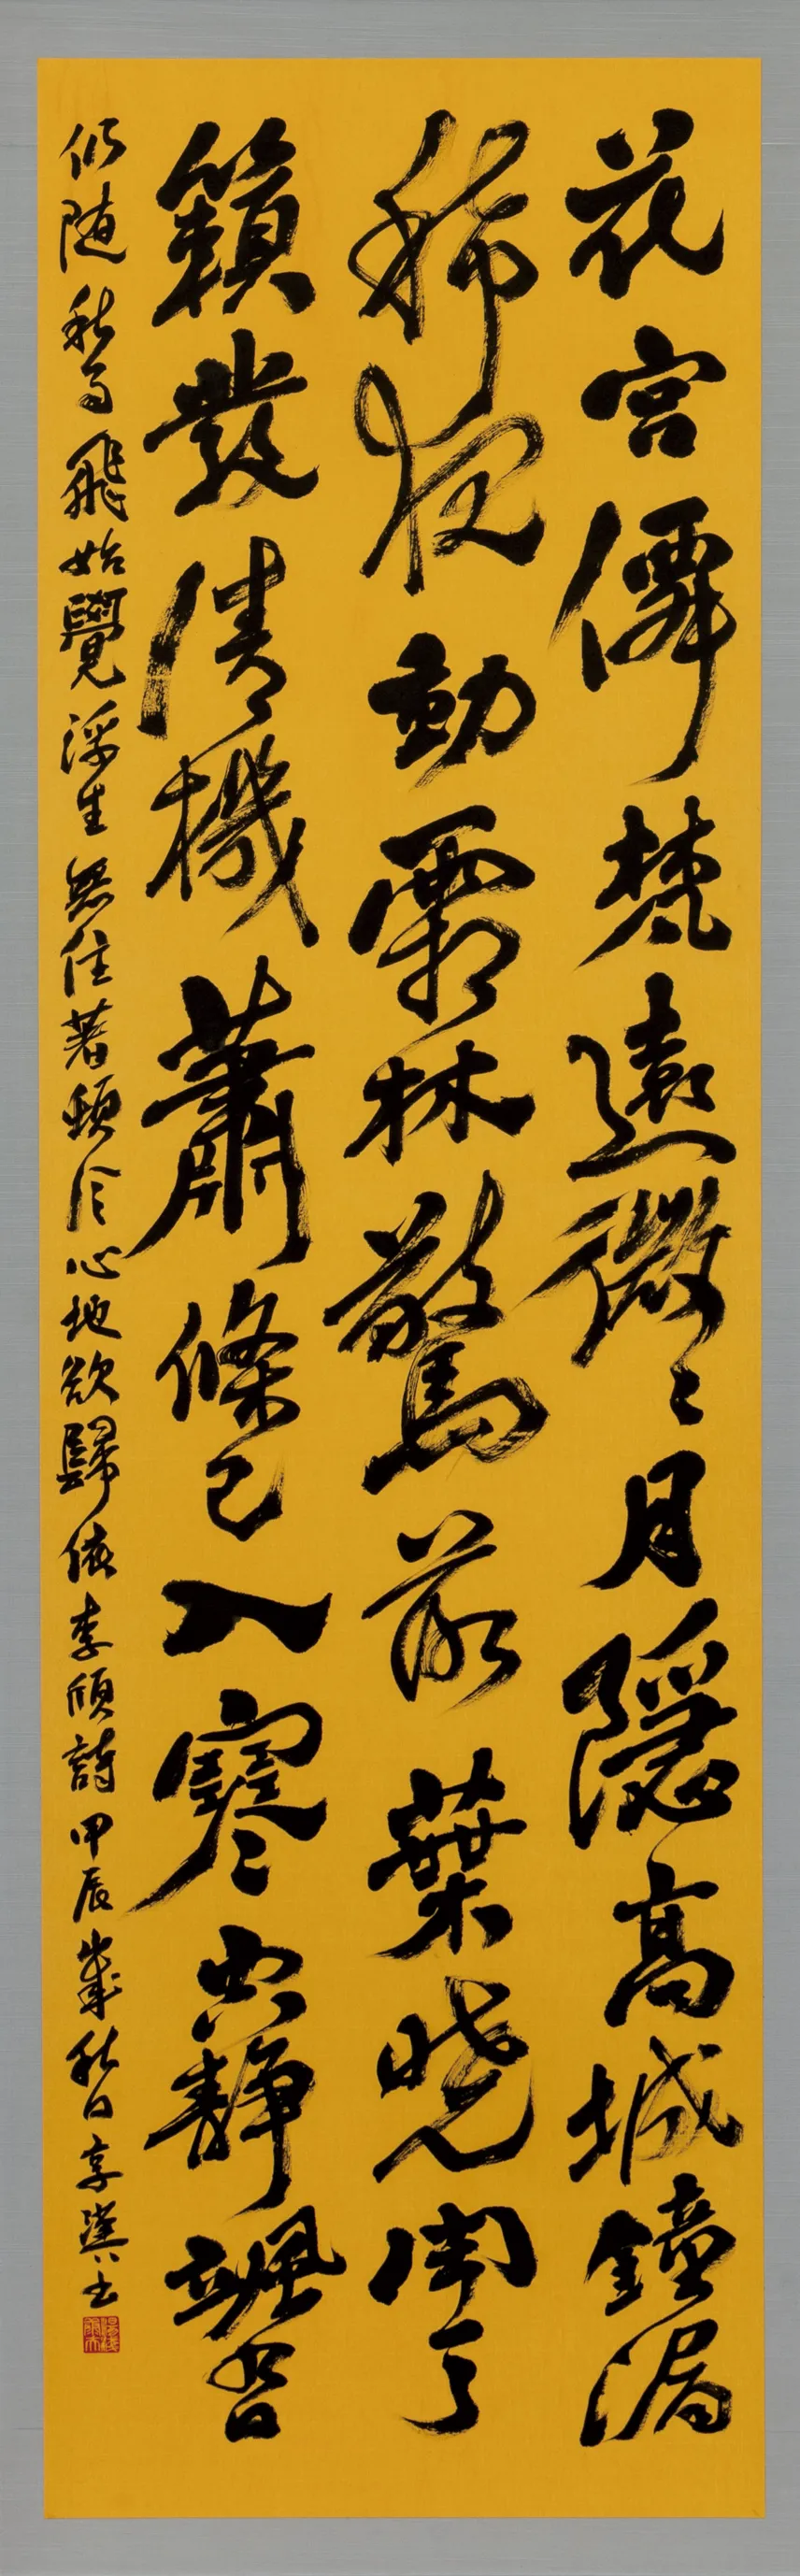 花宮僊梵遠微〻月隱高城鐘漏
稀夜動霜林驚落葉曉聞天
籟發清機蕭條已入寒空靜颯沓
仍随秋雨飛始覺浮生無住著頓令心地欲歸依李頎詩甲辰歲秋日書